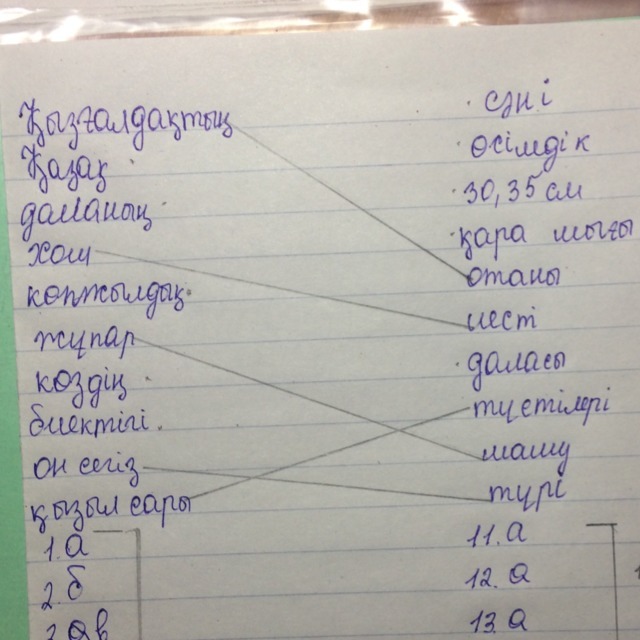 Қызғалдақтың
Қазақ
даланың
хош
көпжылдық
жұпар
көздің
биіктігі
он сегіз
қызыл сары
1. а
2. б
3. ав
сәні
өсімдік
30, 35 см
қара шоғы
отаны
иісті
даласы
түстілері
машу
түрі
11. а
12. а
13. а